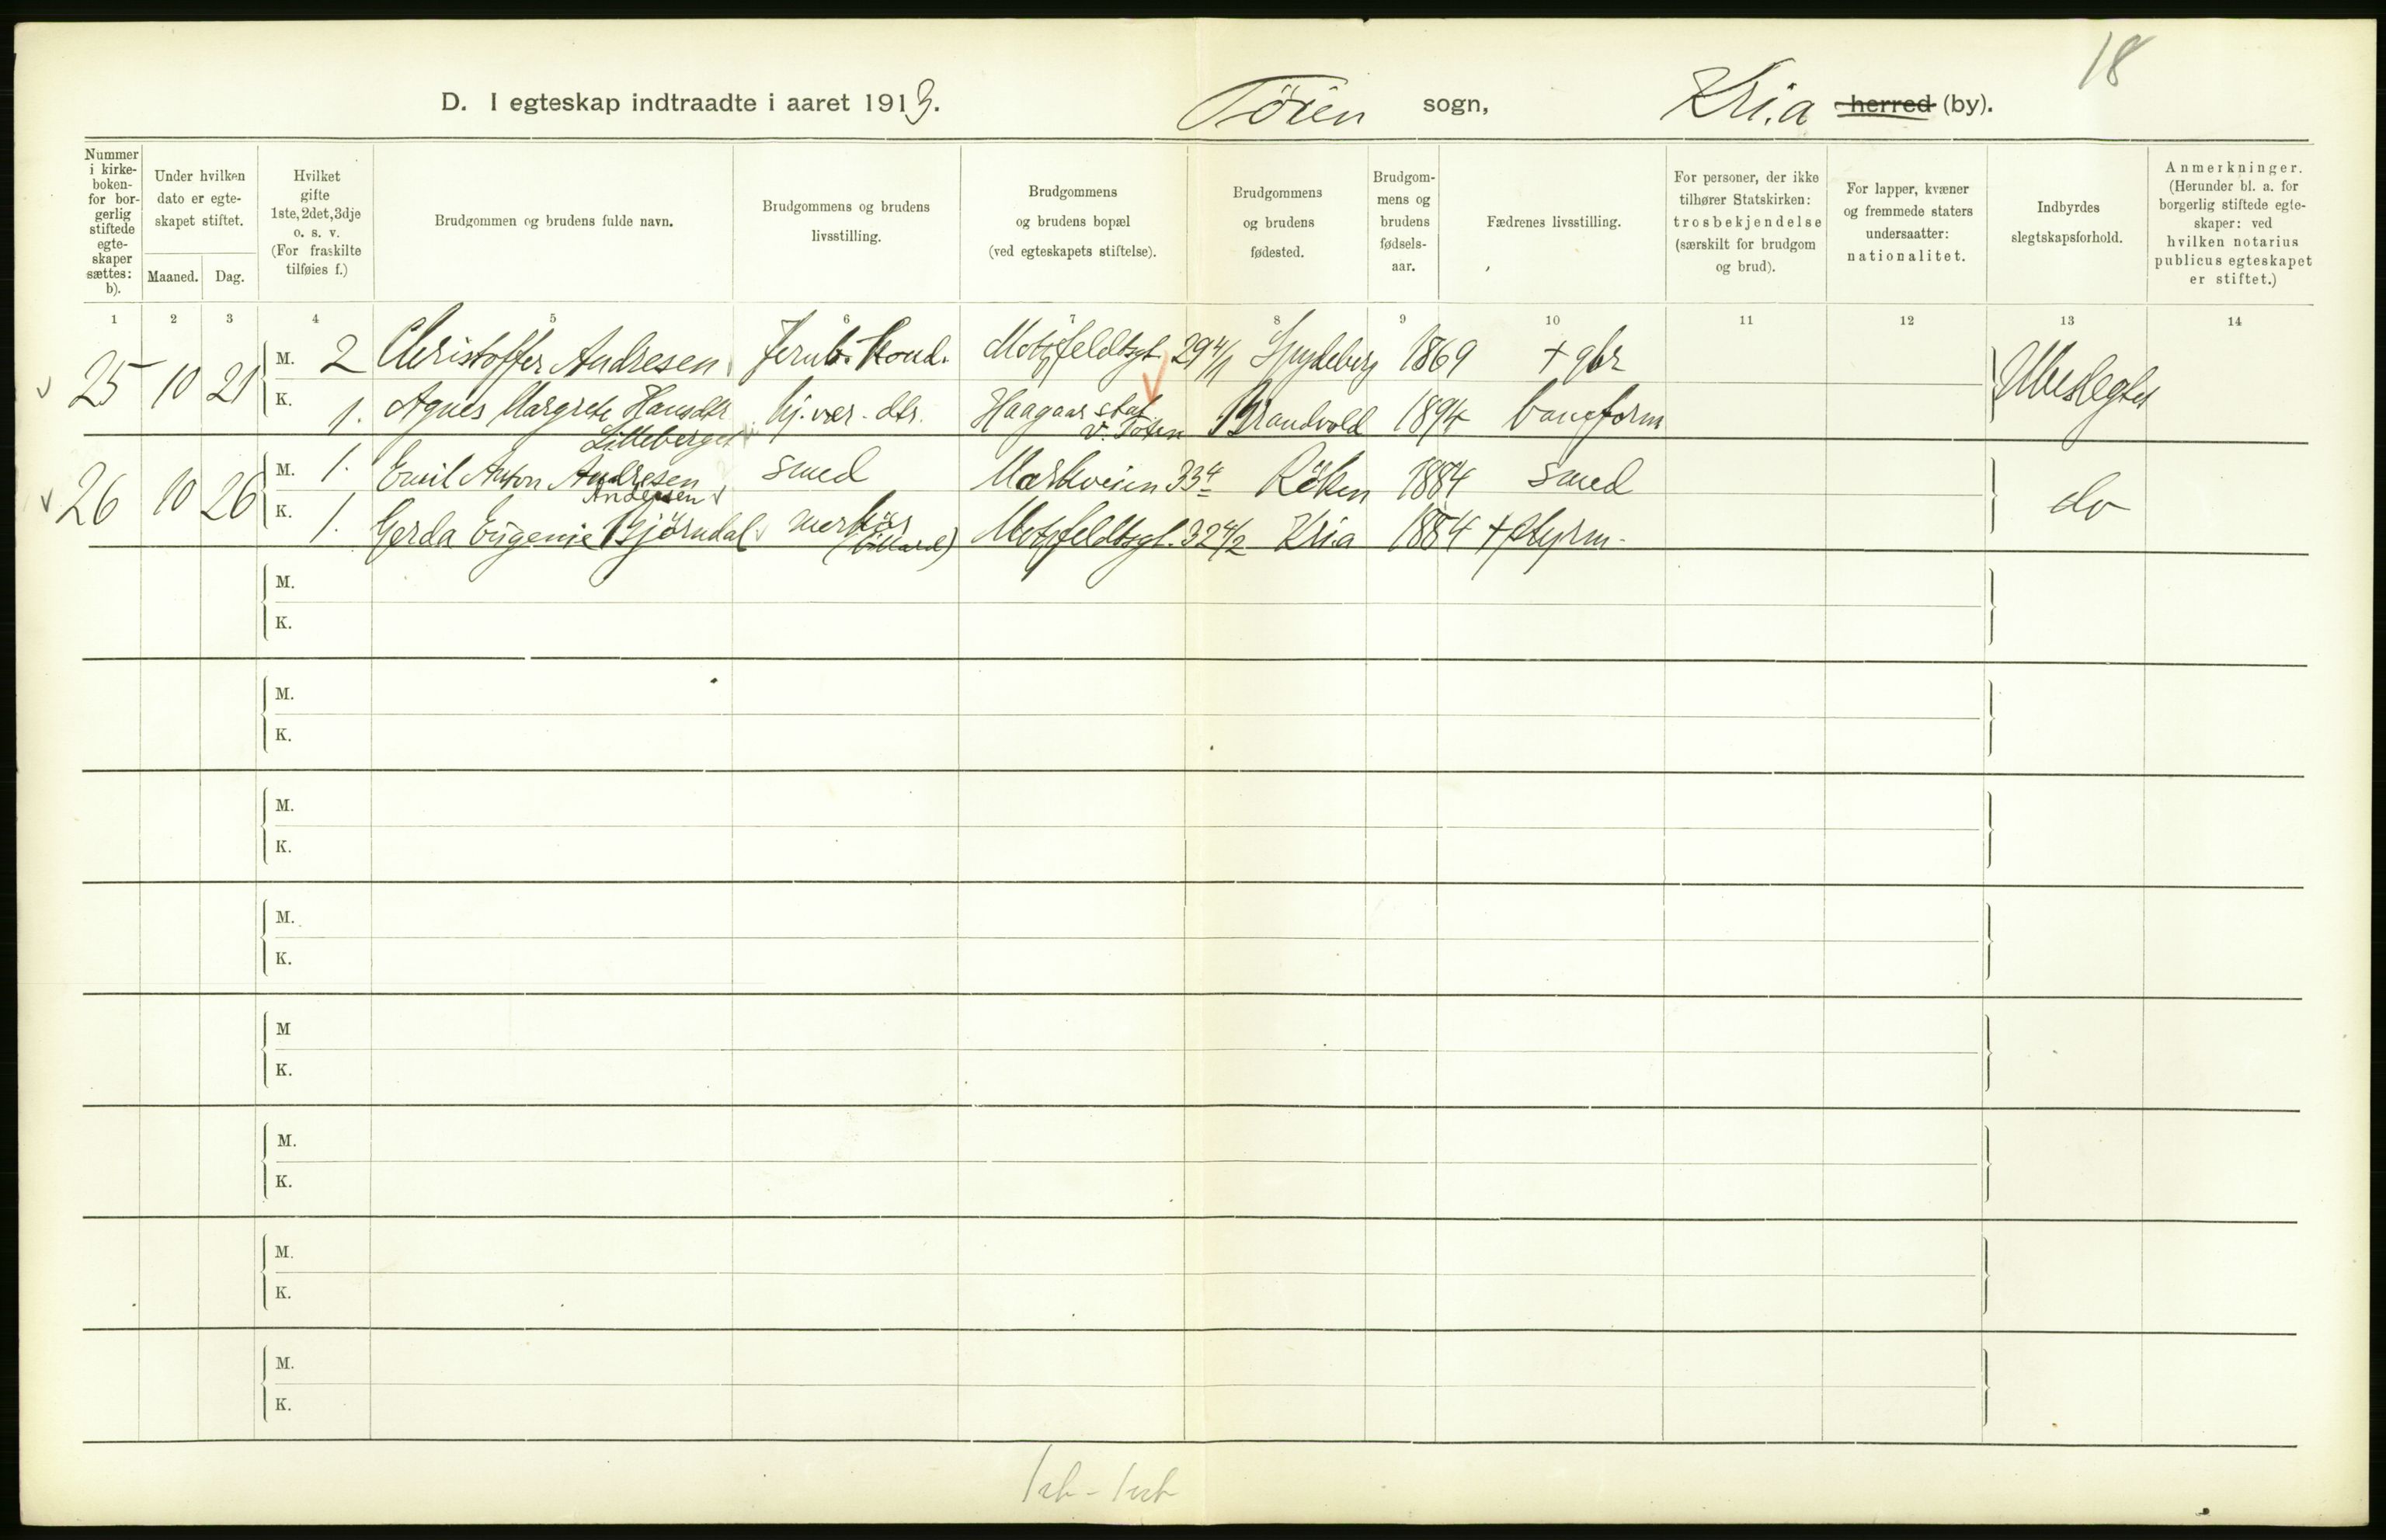 18
D. I egteskap indtraadte i aaret 1913. Töien sogn, Kria herred (by).
Nummer i kirke-boken- for bor-gerlig stiftede egte-skaper sættes: b).
Under hvilken dato er egte-skapet stiftet.
Maaned. Dag.
Hvilket gifte 1ste, 2det, 3dje o. s. v. (For fraskilte tilføies f.)
Brudgommen og brudens fulde navn.
Brudgommens og brudens livsstilling.
Brudgommens og brudens bopæl (ved egteskapets stiftelse).
Brudgommens og brudens fødested.
Brudgom-mens og brudens fødsels-aar.
Fædrenes livsstilling.
For personer, der ikke tilhører Statskirken: trosbekjendelse (særskilt for brudgom og brud).
For lapper, kvæner og fremmede staters undersaatter: nationalitet.
Indbyrdes slegtskapsforhold.
Anmerkninger. (Herunder bl. a. for borgerlig stiftede egte-skaper: ved hvilken notarius publicus egteskapet er stiftet.)
1 2 3 4 5 6 7 8 9 10 11 12 13 14
25 10 21 M. 2 Christoffer Andresen Jernb. Kond. Motzfeldtsgt. 29 4/1 Spydeberg 1869 + gbr Ubeslegtet
K. 1. Agnes Margrete Hansdtr Lilleberget hj. vær. dtr. Haagaar stat v. Toten Brandvold 1894 baneform
26 10 26 M. 1. Emil Anton Andresen Andersen smed Markveien 33 4 Röken 1884 smed do
K. 1. Gerda Eugenie Björndal (billard) Motzfeldtsgt. 32 4/2 Kria 1884 + Styrm.
M.
K.
M.
K.
M.
K.
M.
K.
M
K.
M.
K.
M.
K.
M.
K.